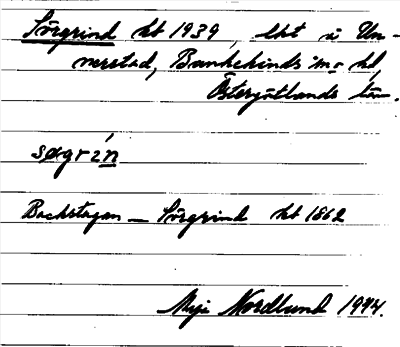 Sörgrind hl 1939, lht å Un-
nerstad, Bankekinds sn o hd,
Östergötlands län.
søgrín
Backstugan — Sörgrind hl 1862
Maja Nordlund 1944.